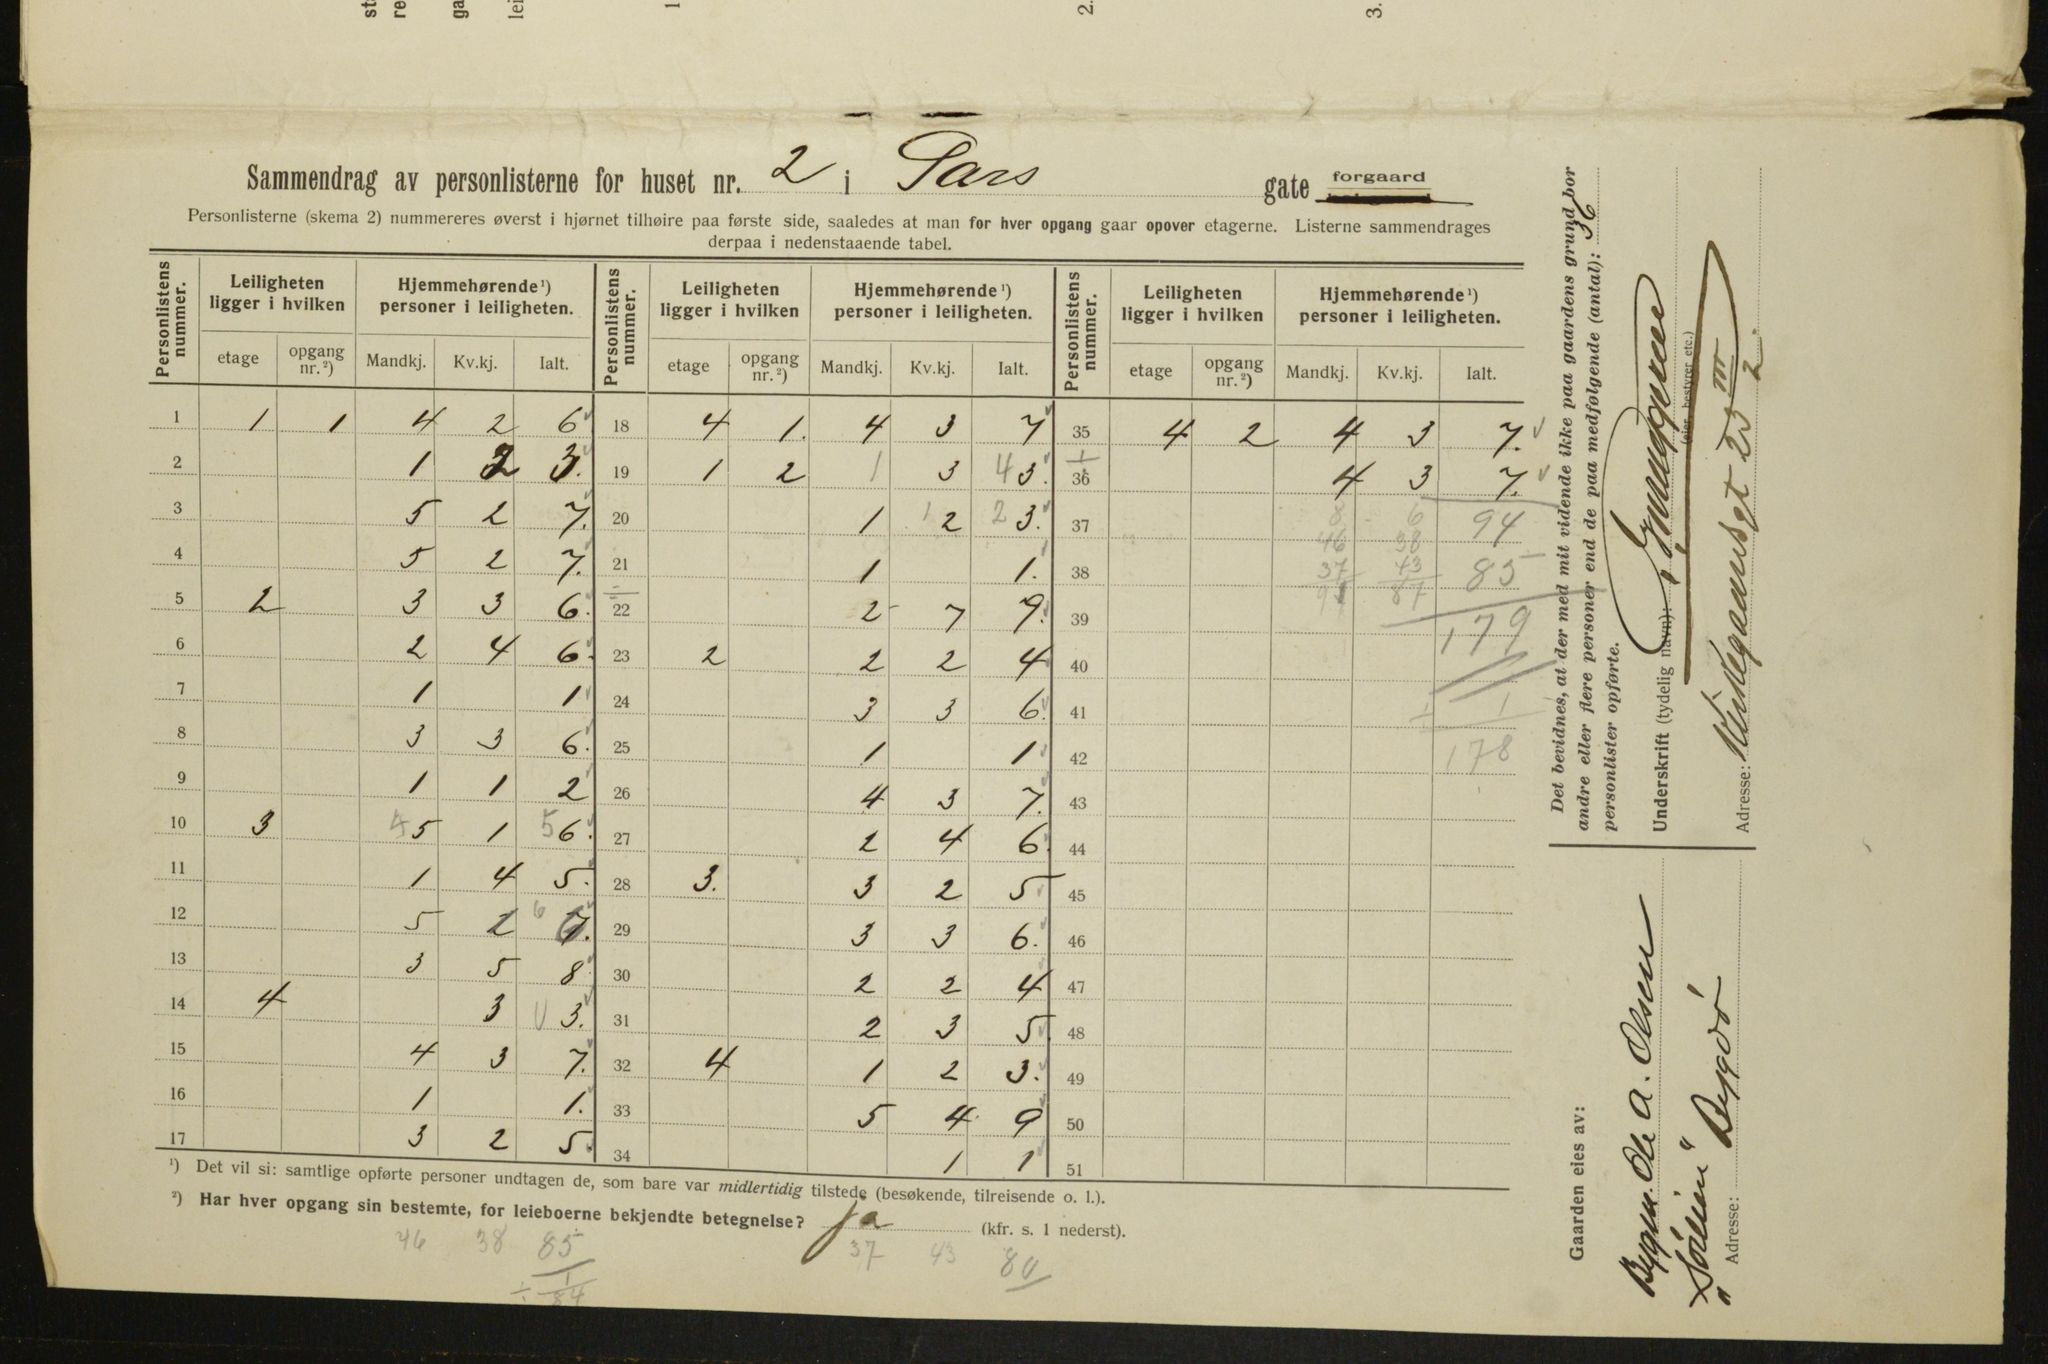 Sammendrag av personlisterne for huset nr. 2 i Sars gate forgaard
Personlisterne (skema 2) nummereres øverst i hjørnet tilhøire paa første side, saaledes at man for hver opgang gaar opover etagerne. Listerne sammendrages
derpaa i nedenstaaende tabel.
Personlistens nummer. Leiligheten ligger i hvilken Hjemmehørende ¹) personer i leiligheten. Personlistens nummer. Leiligheten ligger i hvilken Hjemmehørende ¹) personer i leiligheten. Personlistens nummer. Leiligheten ligger i hvilken Hjemmehørende ¹) personer i leiligheten.
etage opgang nr. ²) Mandkj. Kv.kj. Ialt. etage opgang nr. ²) Mandkj. Kv.kj. Ialt. etage opgang nr. ²) Mandkj. Kv.kj. Ialt.
1 1 1 4 2 6 18 4 1. 4 3 7 35 4 2 4 3 7.
2 1 2 3. 19 1 2 1 3 4 3. 36 4 3 7.
3 5 2 7. 20 1 1 2 2 3. 37 8 6 94
4 5 2 7. 21 1 1. 38 46 38
37 43 85
5 2 3 3 6. 22 2 7 9. 39 87
6 2 4 6. 23 2 2 2 4 40 179
7 1 1 24 3 3 6. 41 1
8 3 3 6. 25 1 1 42 178
9 1 1 2 26 4 3 7. 43
10 3 4 5 1 5 6. 27 2 4 6. 44
11 1 4 5. 28 3. 3 2 5 45
12 5 6 7. 29 3 3 6. 46
13 3 5 8 30 2 2 4 47
14 4 3 3. 31 2 3 5 48
15 4 3 7. 32 4 1 2 3. 49
16 1 1. 33 5 4 9 50
17 3 2 5. 34 1 1 51
¹) Det vil si: samtlige opførte personer undtagen de, som bare var midlertidig tilstede (besøkende, tilreisende o. l.).
²) Har hver opgang sin bestemte, for leieboerne bekjendte betegnelse? ja (kfr. s. 1 nederst).
46 38 85 37 43
÷ 1
84
Det bevidnes, at der med mit vidende ikke paa gaardens grund bor
andre eller flere personer end de paa medfølgende (antal): 36
personlister opførte.
Underskrift (tydelig navn):
(eier, bestyrer etc.)
Adresse:
Gaarden eies av:
Bygm. Ole A. Olsen
"Sólien" Bygdó
Adresse:
1
2.
3.